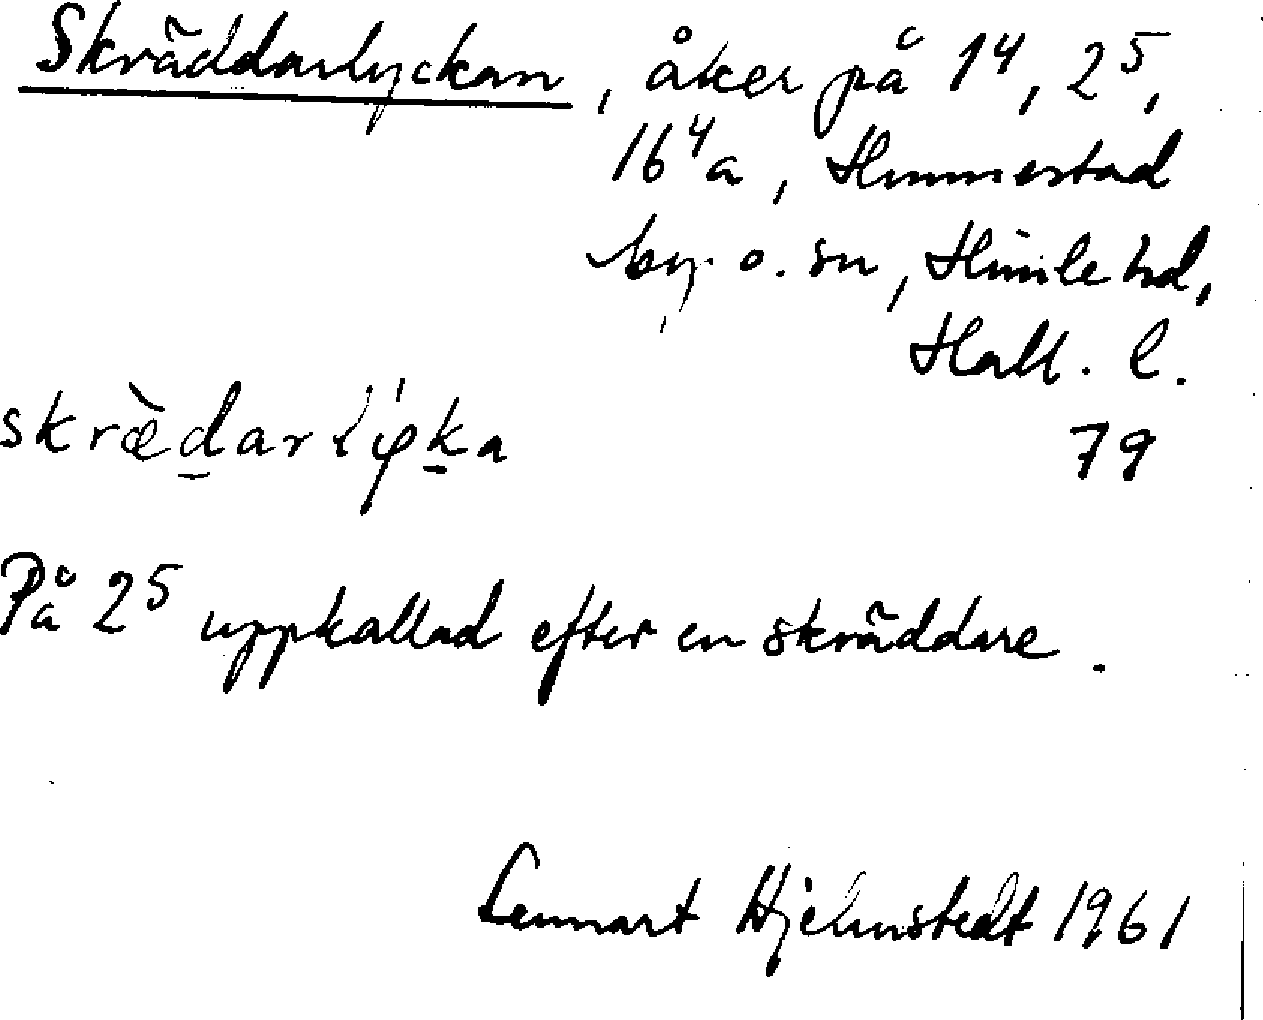 Skräddarlyckan, åker på 1⁴, 2⁵,
16⁴a, Hunnestad
by o. sn, Himle hd,
Hall. l.
skrædar
79
På 2⁵ uppkallad efter en skräddare.
Lennart Hjelmstedt 1961